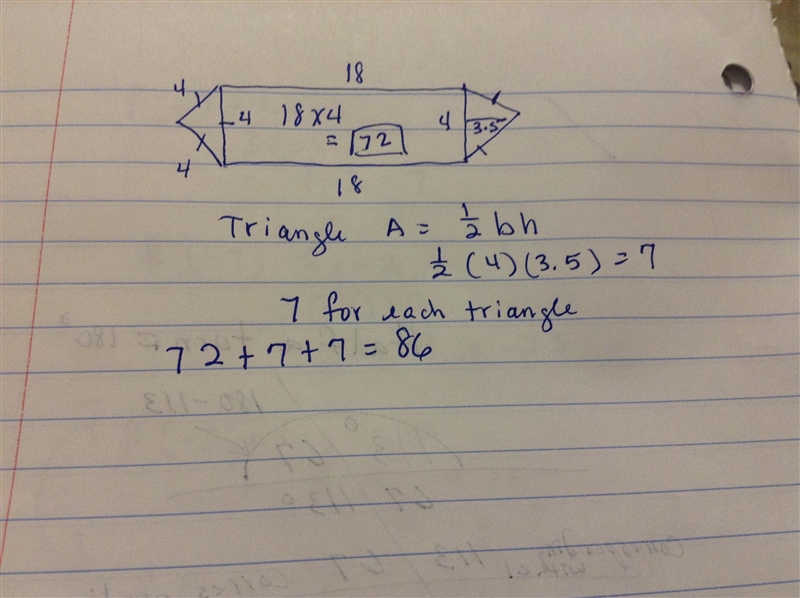 18
4
4 18 x 4 4
= 72 3.5
4
18
Triangle A = 1/2 bh
1/2 (4)(3.5) = 7
7 for each triangle
72 + 7 + 7 = 86
180-113